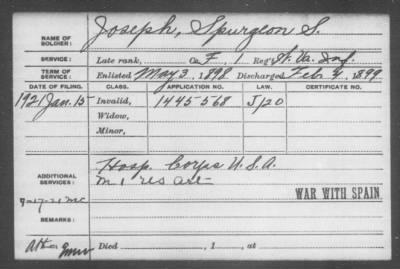 NAME OF SOLDIER: Joseph, Spurgeon S.
SERVICE: Late rank, Co. F, 1 Reg't W. Va. Inf.
TERM OF SERVICE: Enlisted May 3, 1898 Discharged Feb 4, 1899
DATE OF FILING. CLASS. APPLICATION NO. LAW. CERTIFICATE NO.
1921 Jan. 15 Invalid, 1445568 J/20
Widow,
Minor,
ADDITIONAL SERVICES: Hosp. Corps U.S.A.
WAR WITH SPAIN
REMARKS:
Died , 1 , at